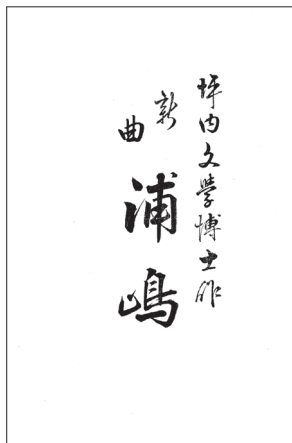 坪内文學博士作
新曲
浦嶋